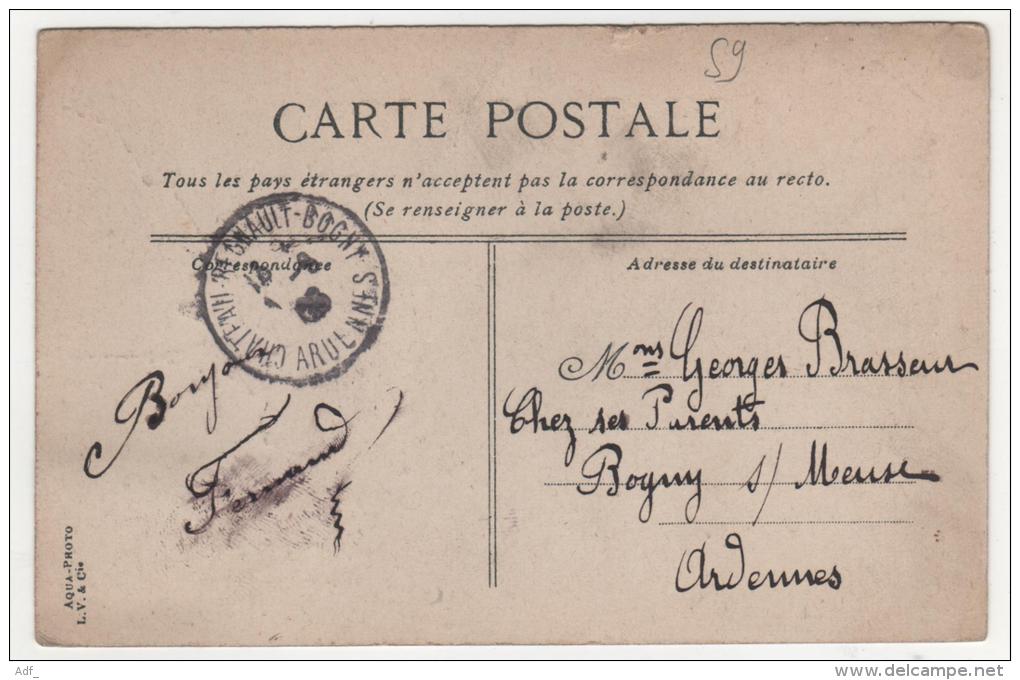 59
CARTE POSTALE
Tous les pays étrangers n'acceptent pas la correspondance au recto.
(Se renseigner à la poste.)
Correspondance
Adresse du destinataire
BOGNY S
ARDENNES
Bonjour
Fernand
Mns Georges Brasseur
Chez ses Parents
Bogny s/ Meuse
Ardennes
AQUA-PHOTO
L.V. & Cie
Adf_
www.delcampe.net